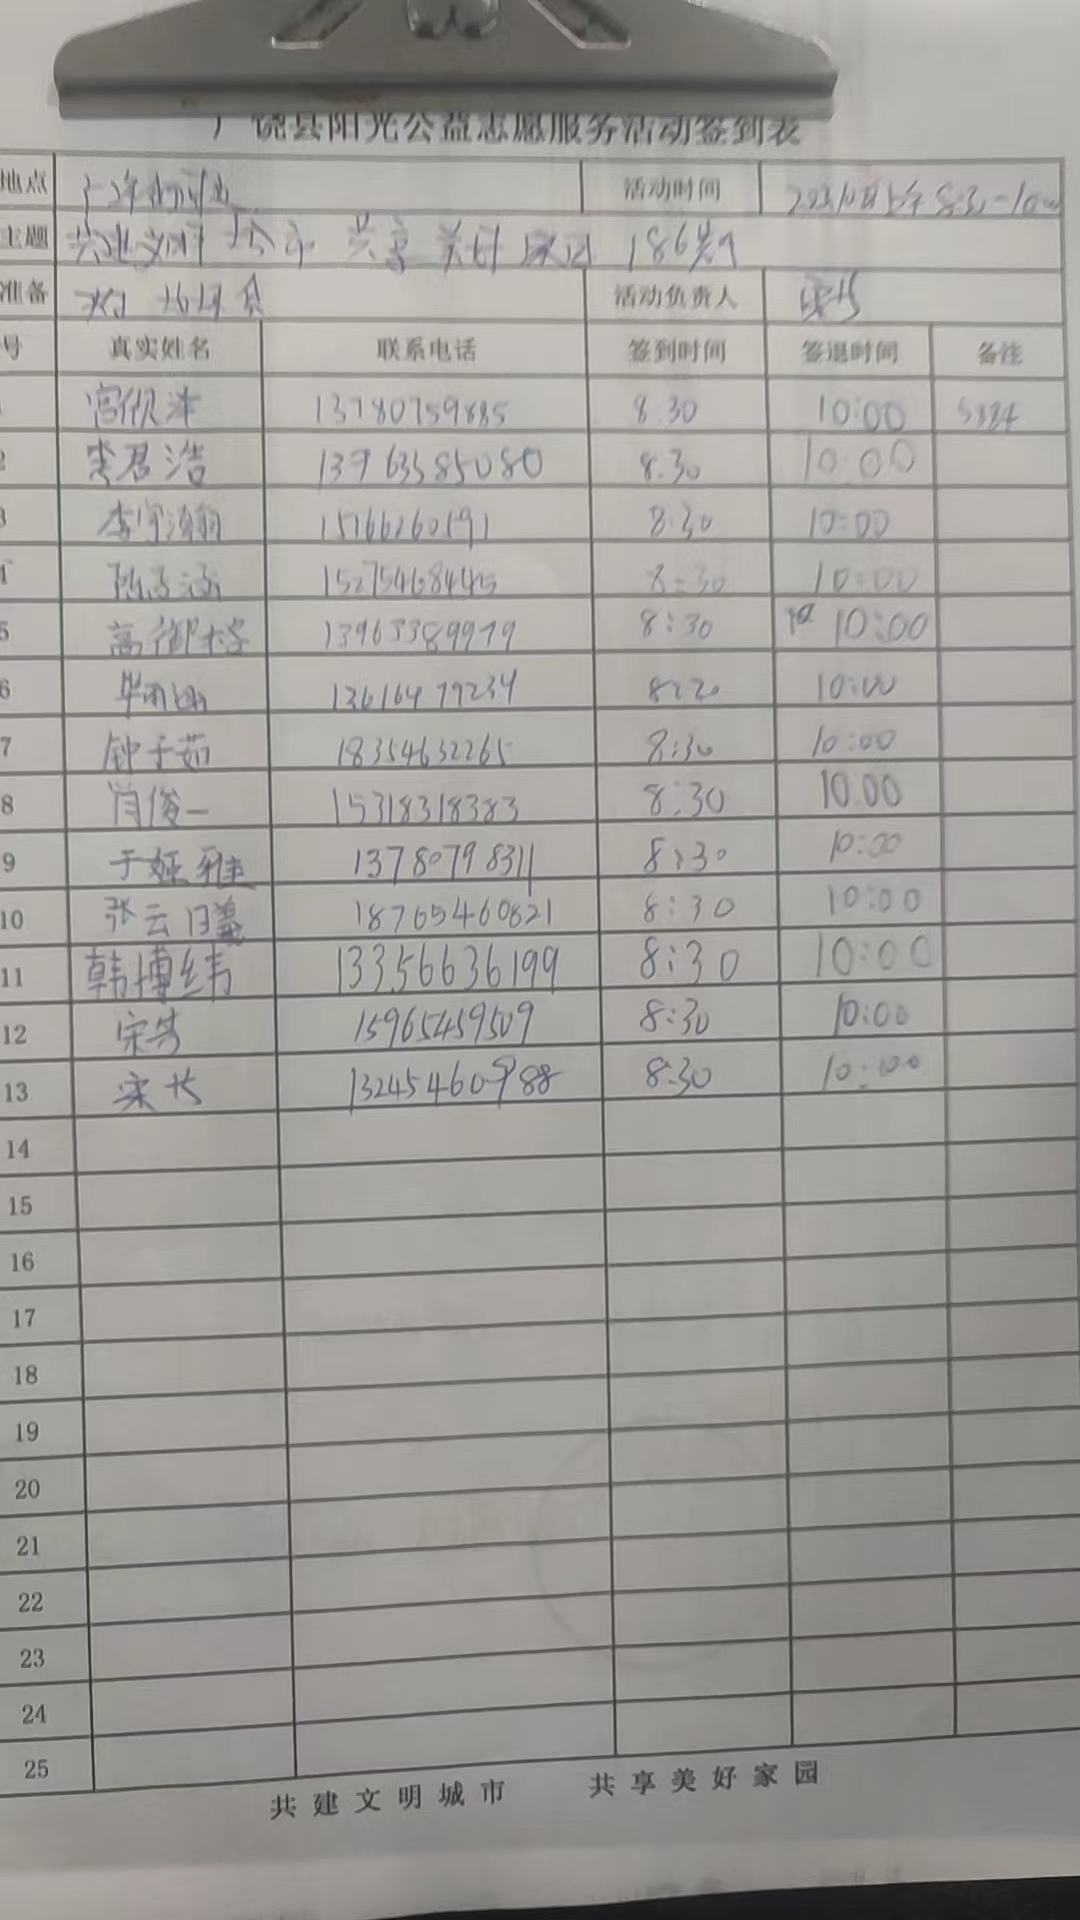 广饶县阳光公益志愿服务活动签到表
地点 活动时间
主题 共建文明 共享 186期
准备 活动负责人
号 真实姓名 联系电话 签到时间 签退时间 备注
13780759885 8.30 10:00
2 李君浩 13963385080 8.30 10:00
3 李宇瀚 15166260191 8.30 10:00
陈子涵 15275468445 8:30 10:00
5 高御 13963389979 8:30 10:00
6 13616479234 8:20 10:00
7 钟于茹 18354632265 8:30 10:00
8 肖俊一 15318318383 8:30 10.00
9 于娅雅 13780798311 8:30 10:00
10 张云曦 18765460821 8:30 10:00
11 韩博纬 13356636199 8:30 10:00
12 宋 15965459509 8:30 10:00
13 宋长 13245460988 8:30 10:00
14
15
16
17
18
19
20
21
22
23
24
25
共建文明城市 共享美好家园